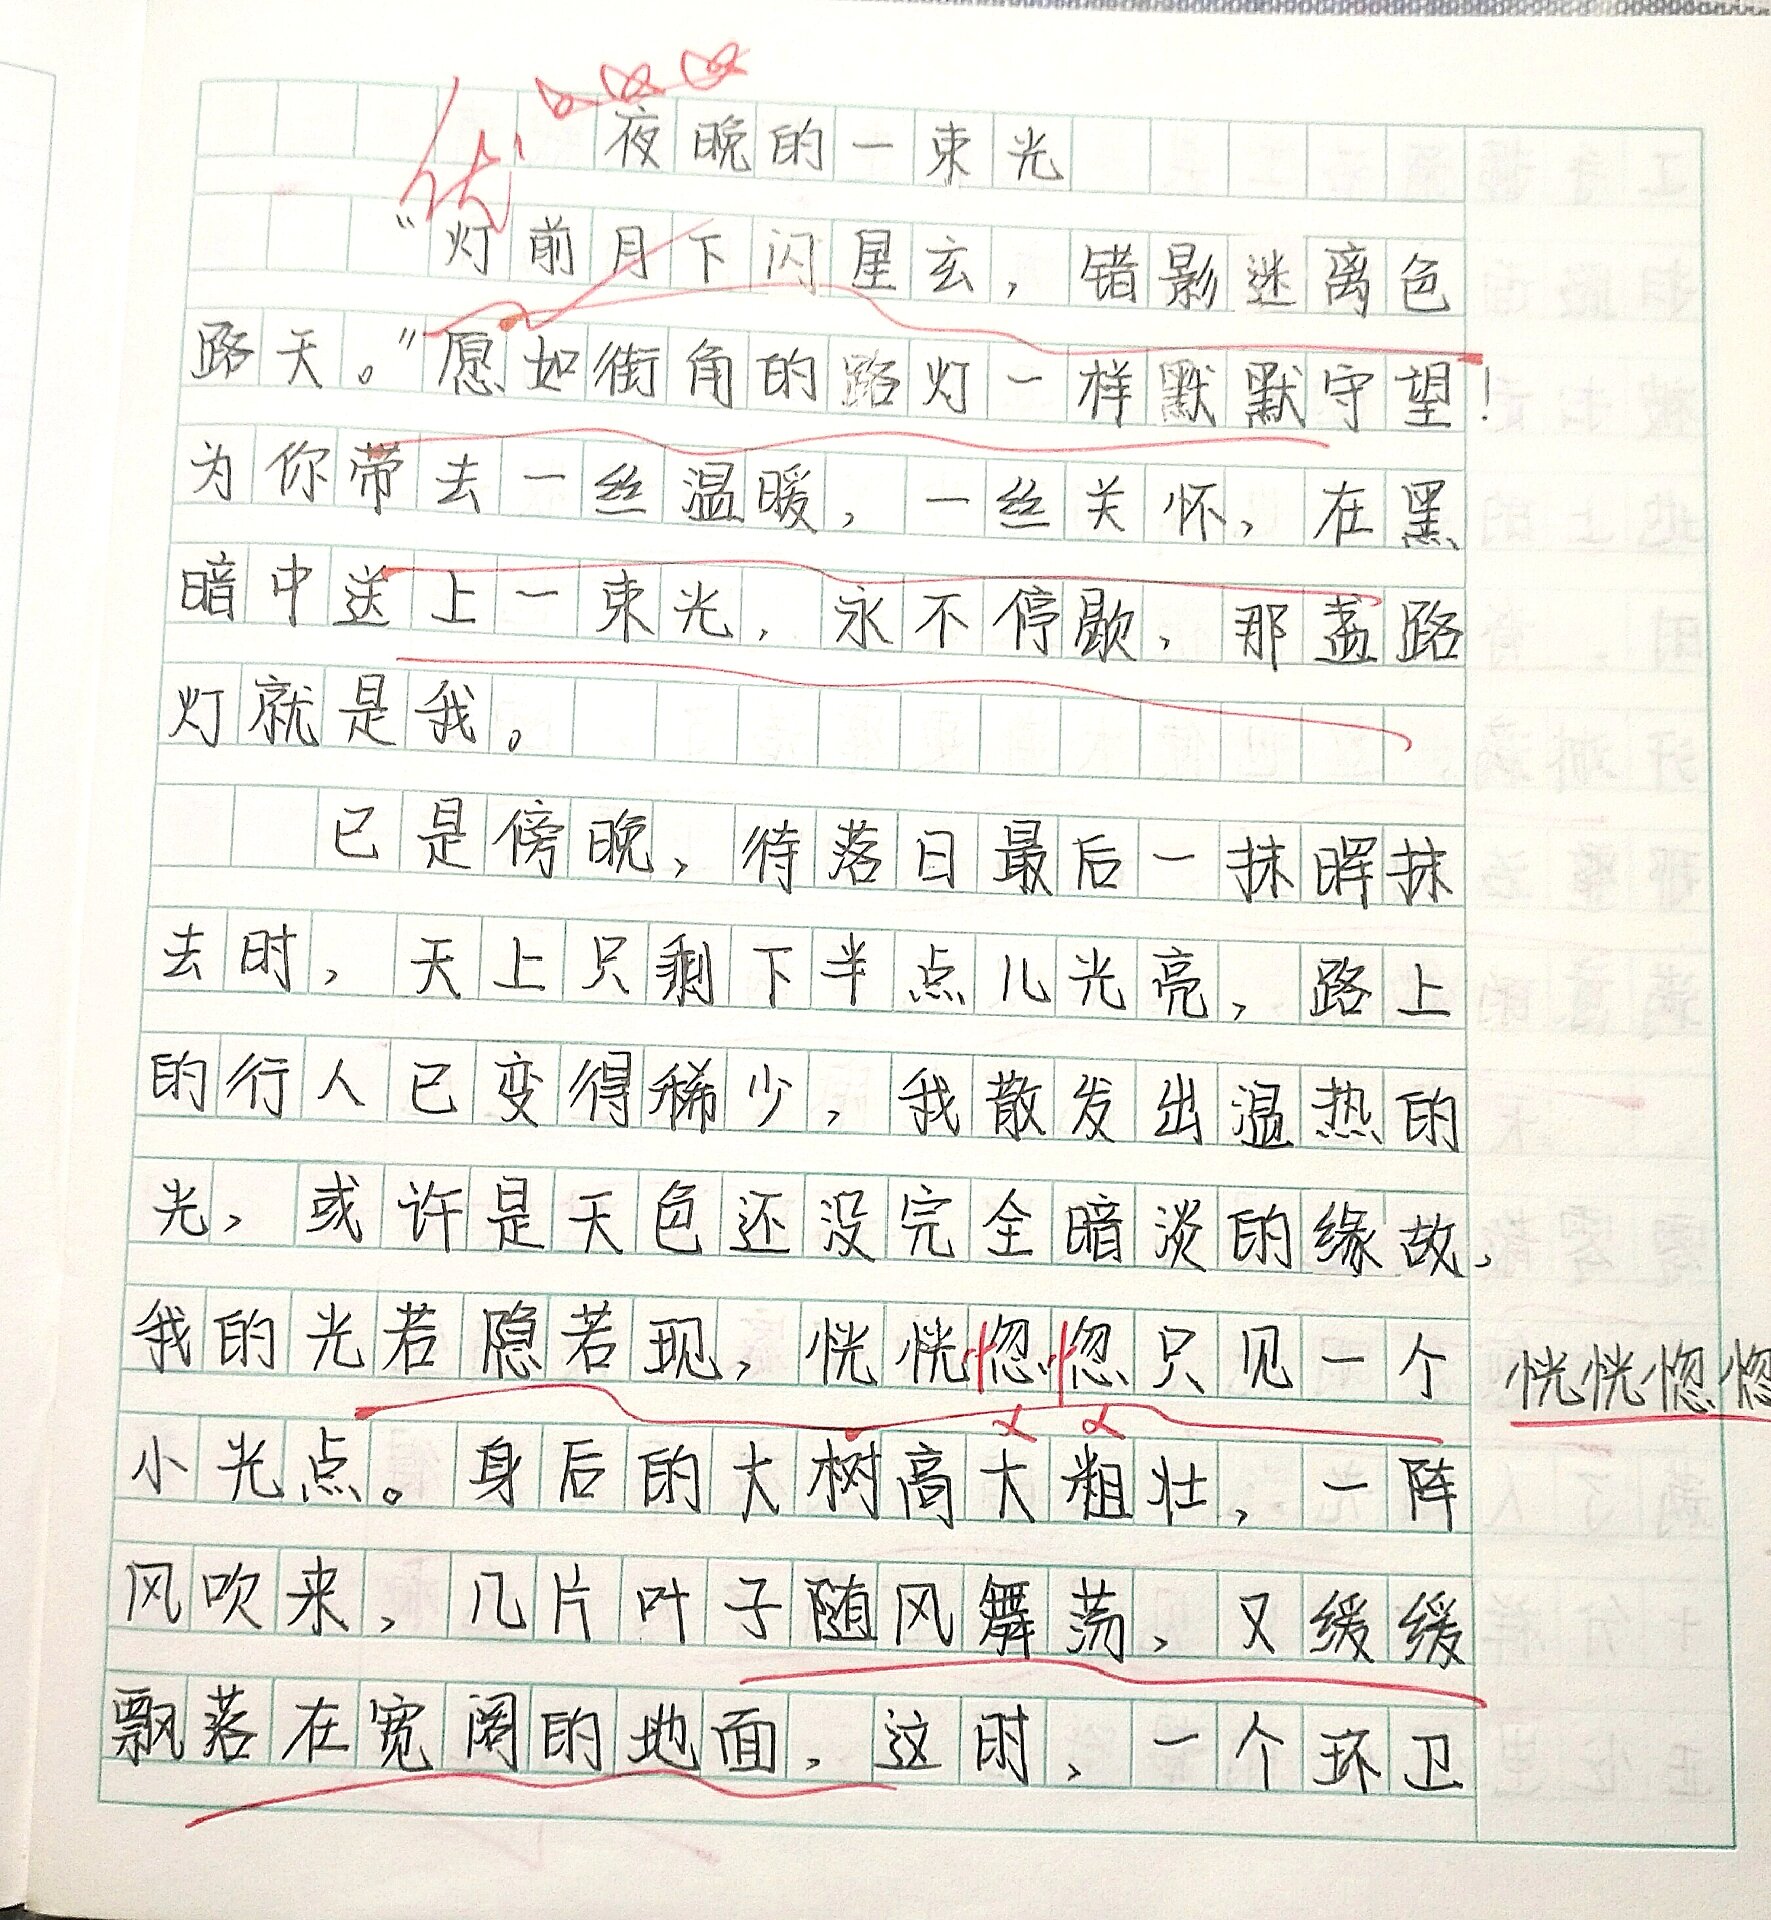 优
夜晚的一束光
“灯前月下闪星玄，错影迷离色
路天。”愿如街角的路灯一样默默守望！
为你带去一丝温暖，一丝关怀，在黑
暗中送上一束光，永不停歇，那盏路
灯就是我。
已是傍晚，待落日最后一抹晖抹
去时，天上只剩下半点儿光亮，路上
的行人已变得稀少，我散发出温热的
光，或许是天色还没完全暗淡的缘故，
我的光若隐若现，恍恍惚惚只见一个
恍恍惚惚
小光点。身后的大树高大粗壮，一阵
风吹来，几片叶子随风舞荡，又缓缓
飘落在宽阔的地面，这时，一个环卫